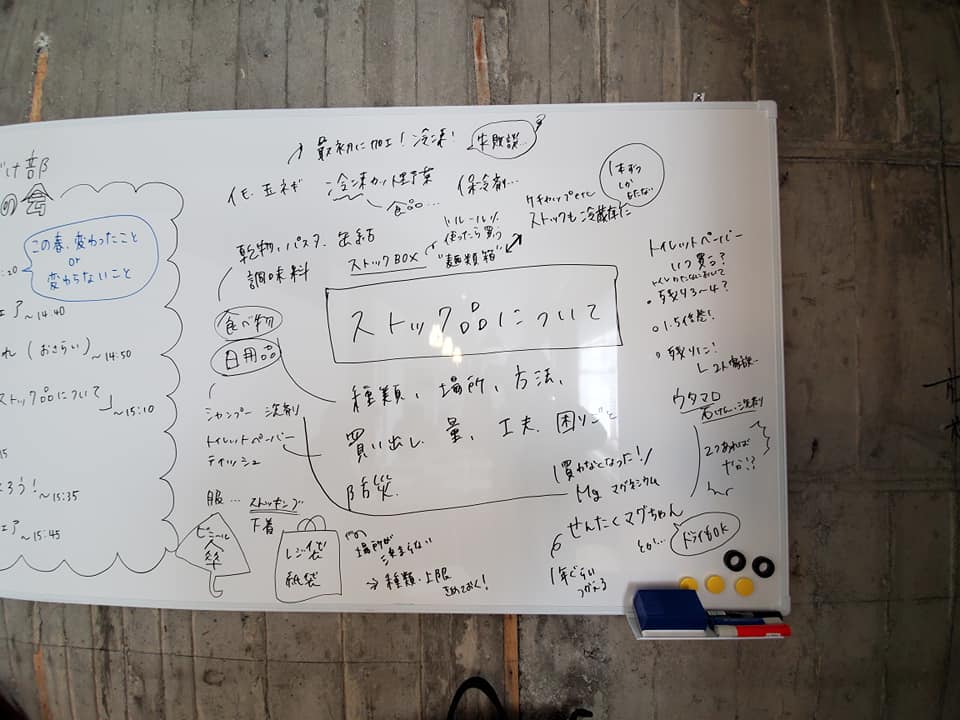 け部
の会
この春、変わったこと
or
変わらないこと
:20
ェア～14:40
れ（おさらい）～14:50
ストック品について」
～15:10
15
ろう！～15:35
ェア～15:45
最初に加工！冷凍！
失敗談…
イモ、玉ネギ
冷凍カット野菜
食品…
保冷剤…
ケチャップetc
ストックも冷蔵庫に
1本ずつ
しか
もたない
乾物、パスタ、缶詰
調味料
ストックBOX
ルール
使ったら買う
"麺類箱"
食べ物
日用品
ストック品について
種類、場所、方法、
買い出し、量、工夫、困りごと
防災、
シャンプー 洗剤
トイレットペーパー
ティッシュ
服… ストッキング
下着
ビニール
傘
レジ袋
紙袋
場所が
決まらない
→種類、上限
きめておく！
トイレットペーパー
いつ買う？
残り3～4？
1.5倍巻！
残り1こ！
2人家族…
ウタマロ
石けん・洗剤
2つあれば
買わなくなった！
Mg マグネシウム
せんたくマグちゃん
とか…
ドライもOK
1年ぐらい
つかえる